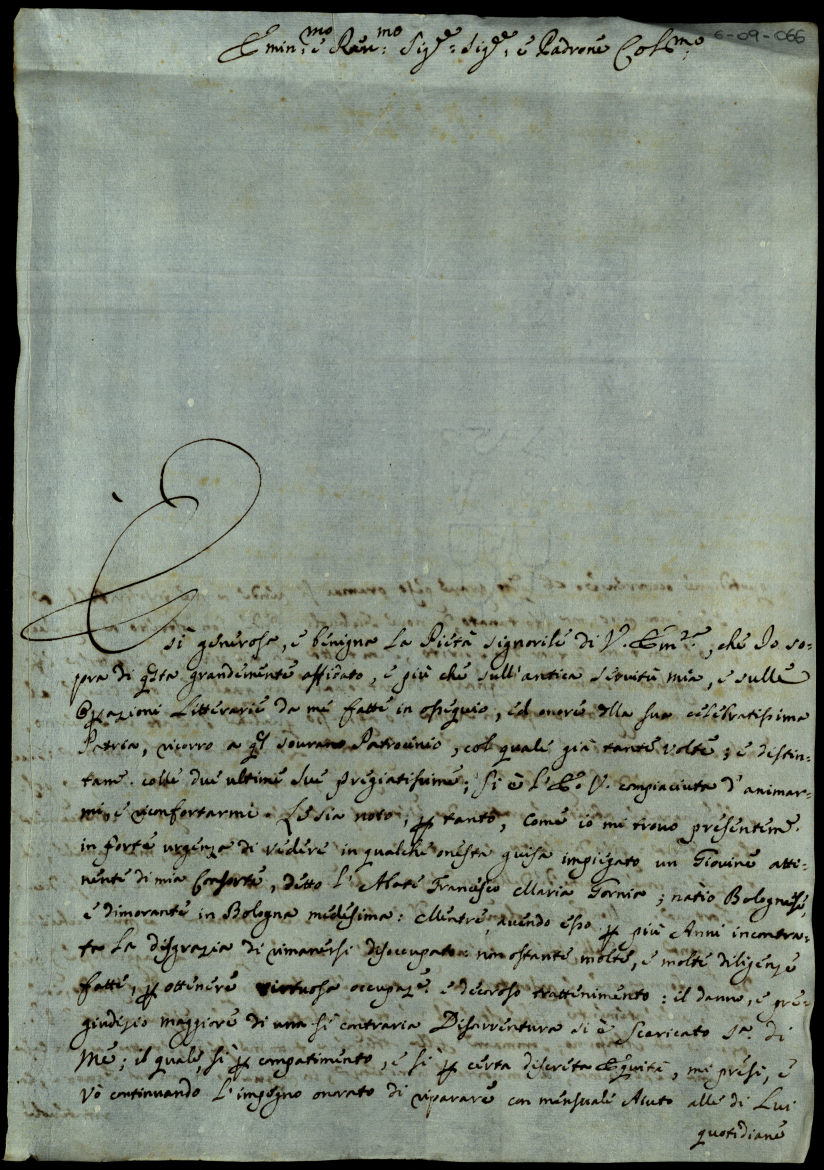 6-09-066
Emin.mo e Rev.mo Sig.re Sig.re e Padrone Col.mo
È sì generosa, e benigna la Pietà signorile di V. Em.za, che Io so=
pra di q.sta grandemente affidato, e più che sull'antica servitù mia, e sulle
Operazioni Litterarie da me fatte in ossequio, ed onore della sua celebratissima
Patria, ricorro a q.l sourano Patrocinio, col quale già tante volte; e destin=
tam.e colle due ultime sue pregiatissime; Si è l'E. V. compiaciuta d'animar=
mi, e riconfortarmi. Le sia noto, p tanto, come io mi trovo presentem.e
in forte urgenza di vedere in qualche onesta guisa impiegato un Giovine atti=
nente di mia Consorte, detto l'Abate Francesco Maria Tornia; natio Bolognese,
e dimorante in Bologna medesima: Mentre, avendo esso p più Anni incontra=
ta la disgrazia di rimanersi disoccupato: non ostante molte, e molte diligenze
fatte, p ottenere virtuosa occupaz.e e decoroso trattenimento: il danno, e pre=
giudizio maggiore di una sì contraria Disavventura si è scaricato s.a di
Me; il quale, sì p compatimento, e sì p certa discreta Equità, mi presi, e
vò continuando l'impegno onorato di riparare con mensuale Aiuto alle di Lui
quotidiane